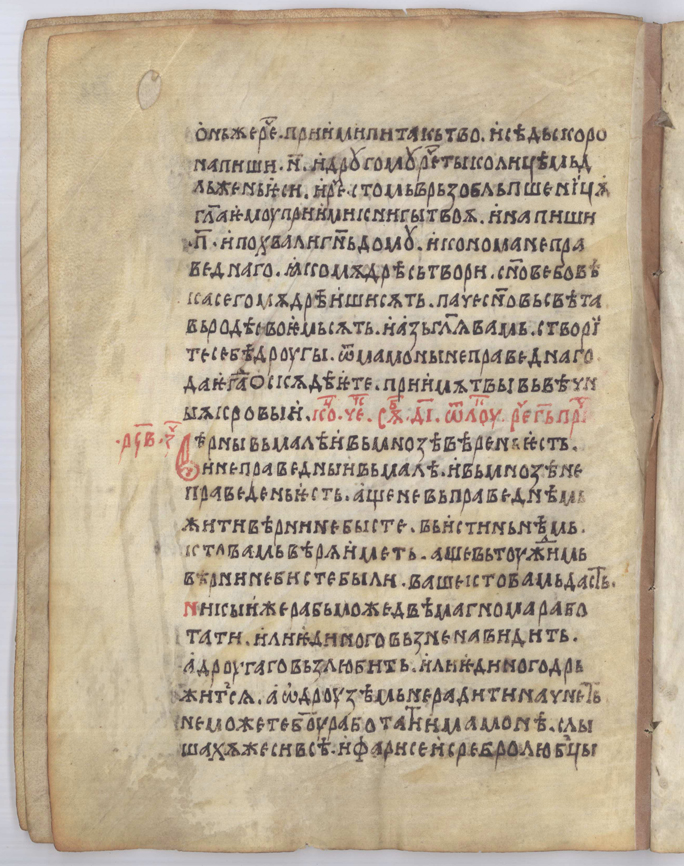 ѻнъже ре҇ . прииминитакътво . исѣдыскоро
напиши . н҃ . идроугомоу ре҇ тыколицѣмьд
лъженъѥси . иреⷱстомьврьзобльпшениїцѧ
гл҃аѥмоуприимикнигытвоѧ . инапиши
· п҃ · ипохвалигнⷭ҇ьдомоу . икономанепра
веднаго . ꙗкомѫдрѣсътвори . сн҃овебовѣ
касегомѫдрѣишисѫть . пачесн҃овъсвѣта
въродѣсвоѥмьсѫть . иазъгл҃ѧвамь . створї
тесебѣдроугы . ѿмамоныненраведнаго
даѥгдаѡскѫдѣѥте . приимѫтвывьвѣчн
ыѧкровыи . ко҃ . че҃ . сѫ҃ . дı҃ . ѿлоу . ре҇ гь҃пр
· рч҃в · з҃ · Вѣрнывьмалѣивьмноѕѣвѣренъѥсть .
инеправедныивьмалѣ . ивьмноѕѣне
праведенъѥсть . ащеневьправеднѣмь
житивѣрнинебысте . вьистиньнѣмь .
ктовамьвѣрѫиметь . ащевьтоуждимь
вѣрнинебистебыли . вашектовамьдастⸯь .
никыижерабьможедвѣмагномарабо
тати . илиѥдиноговьзненавидить .
адроугаговьзлюбить . илиѥдиногодрь
житсѧ . аѡдроуѕѣмьнерадитиначнеть
неможетебо҃уработатиимамонѣ . слы
шахѫжесивсѣ . ифарисеисребролюбцы